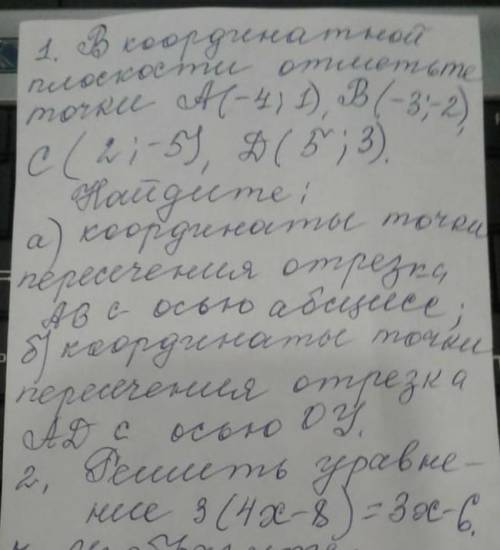 1. В координатной
плоскости отметьте
точки А(-4; 1), В(-3;-2),
С(2;-5), D(5;3).
Найдите:
а) координаты точки
пересечения отрезка
АВ с осью абсцисс;
б) координаты точки
пересечения отрезка
AD с осью ОУ.
2, Решить уравне-
ние 3(4х-8)=3х-6.